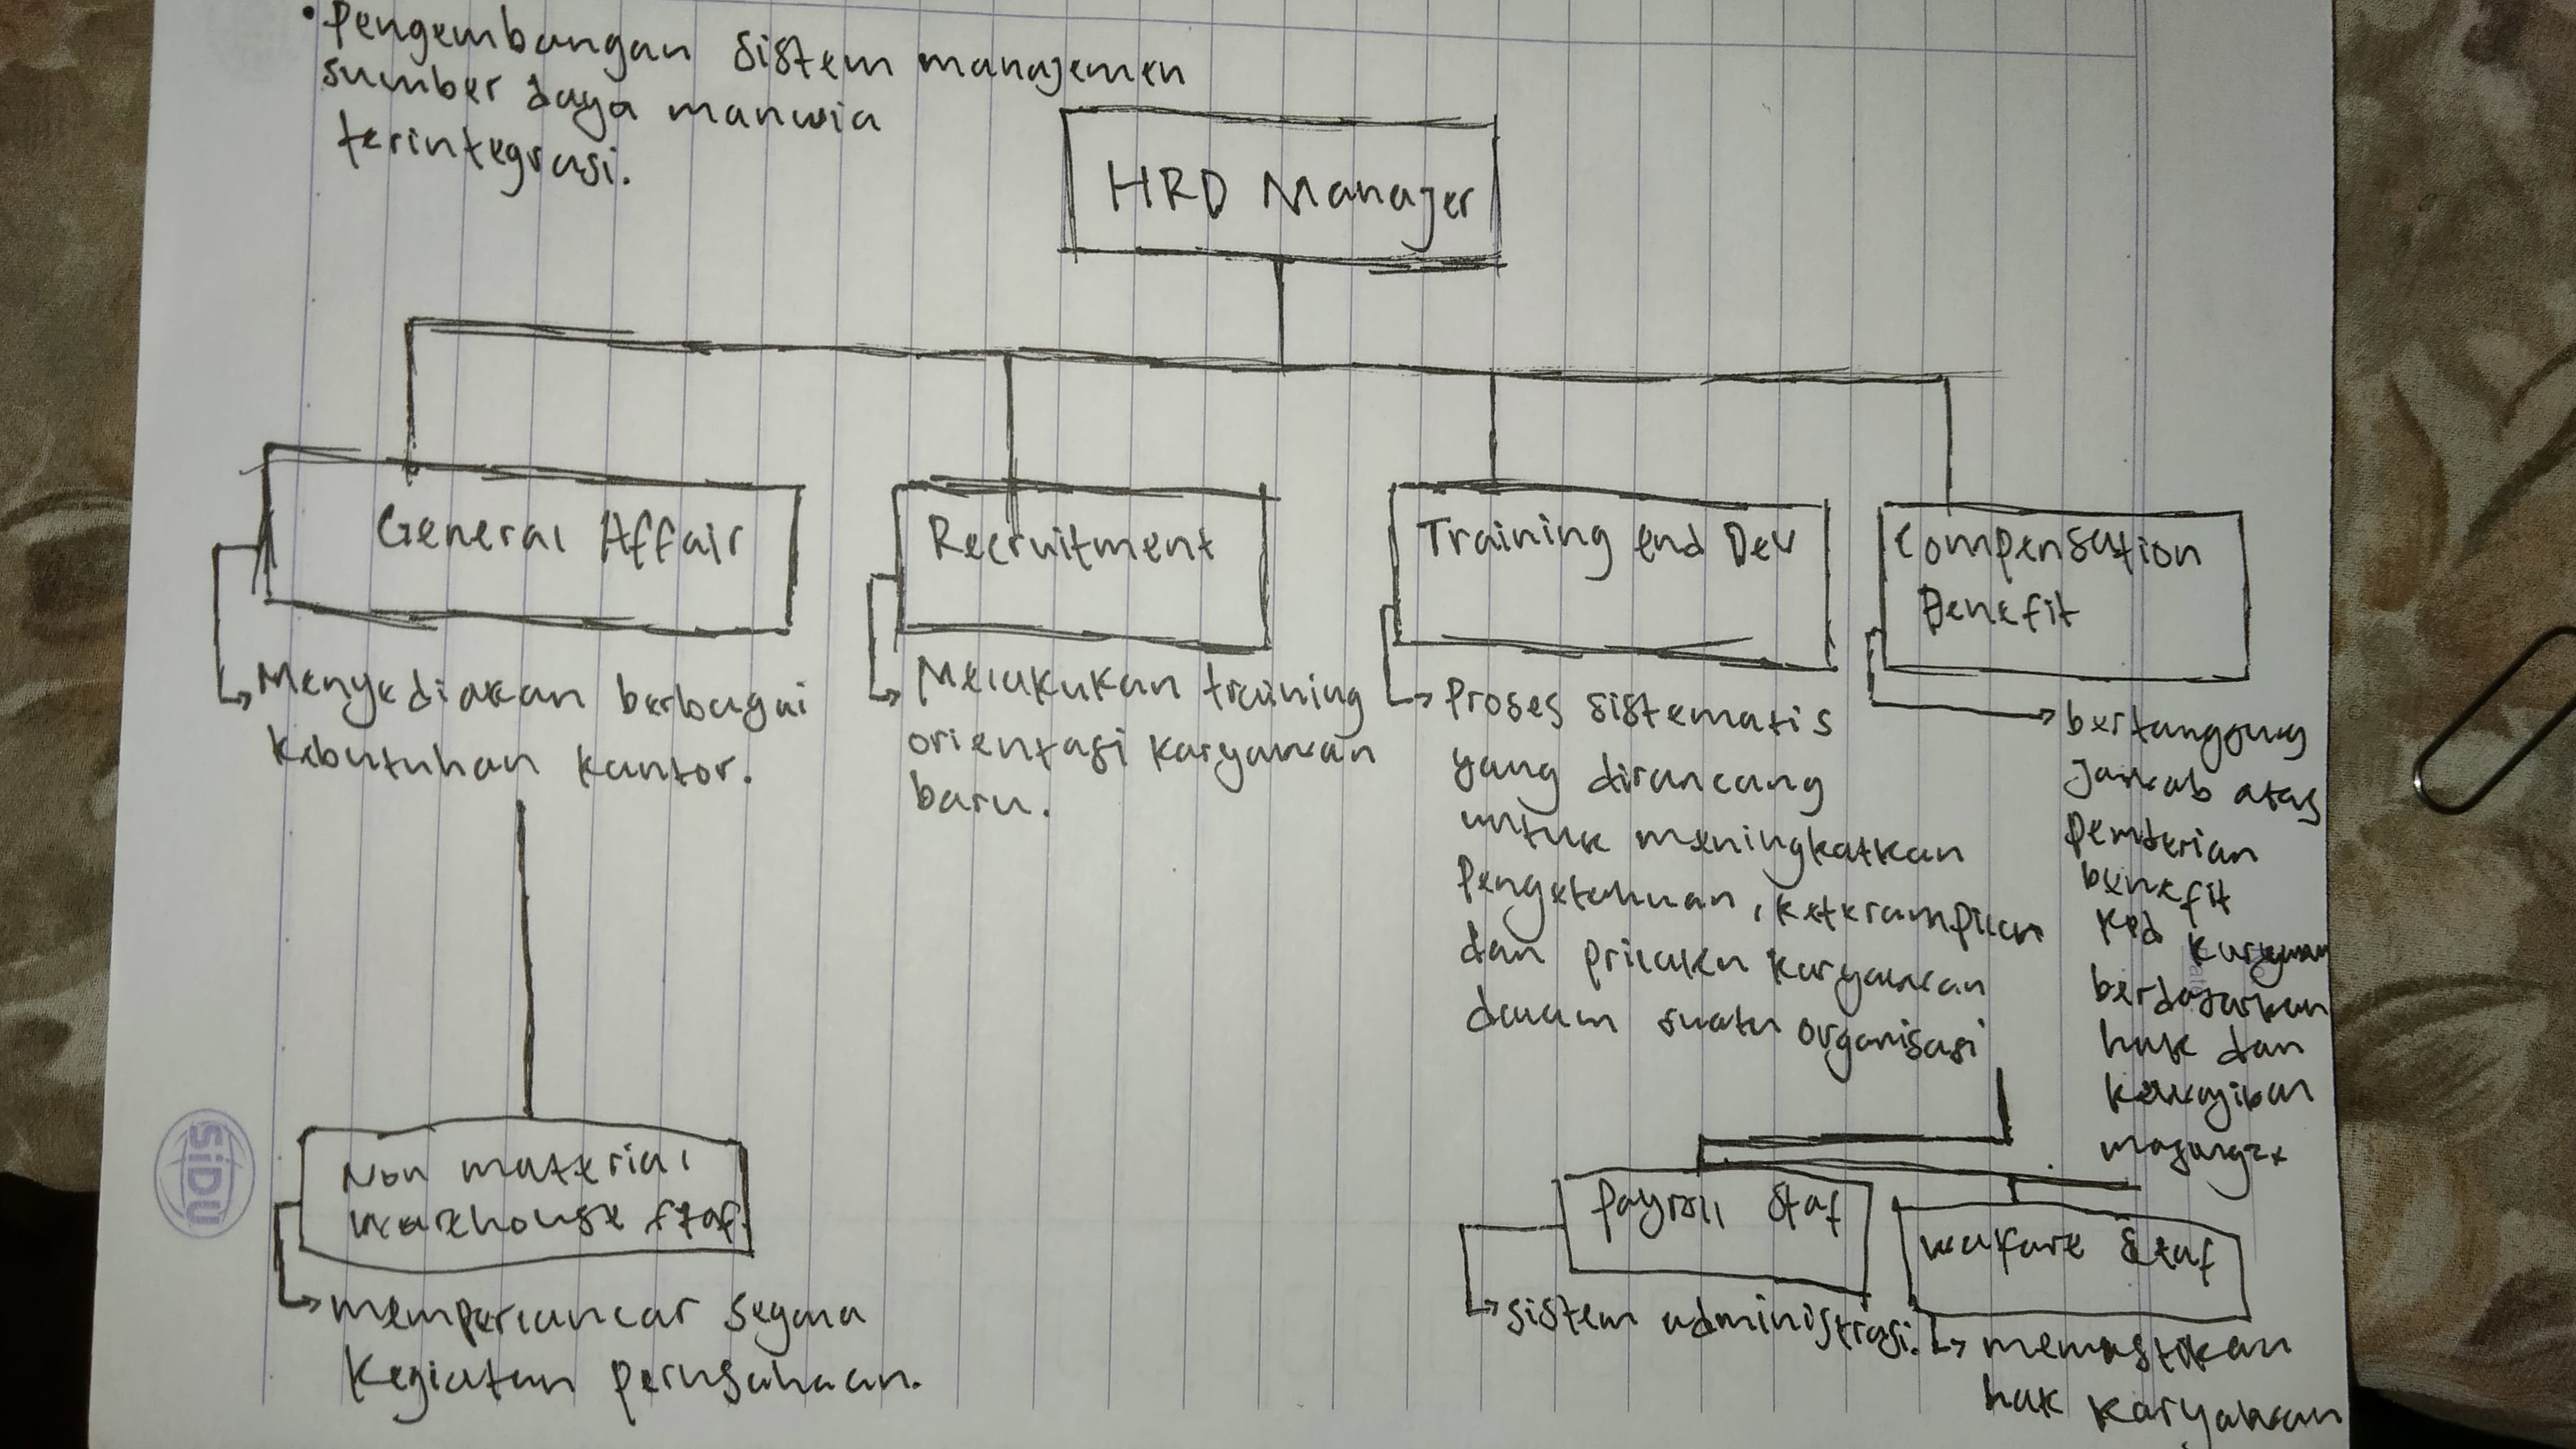 • Pengembangan sistem manajemen
sumber daya manusia
terintegrasi.
HRD Manajer
General Affair
Menyediakan berbagai
kebutuhan kantor.
Recruitment
Melakukan training
orientasi karyawan
baru.
Training end Dev
Proses sistematis
yang dirancang
untuk meningkatkan
pengetahuan, keterampilan
dan prilaku karyawan
dalam suatu organisasi
Compensation
Benefit
bertanggung
jawab atas
pemberian
benefit
kpd karyawan
berdasarkan
hak dan
kewajiban
masing2x
Non material
warehouse staf.
memperlancar segala
kegiatan perusahaan.
Payroll Staf
sistem administrasi.
walfare Staf
memastikan
hak karyawan
SiDU